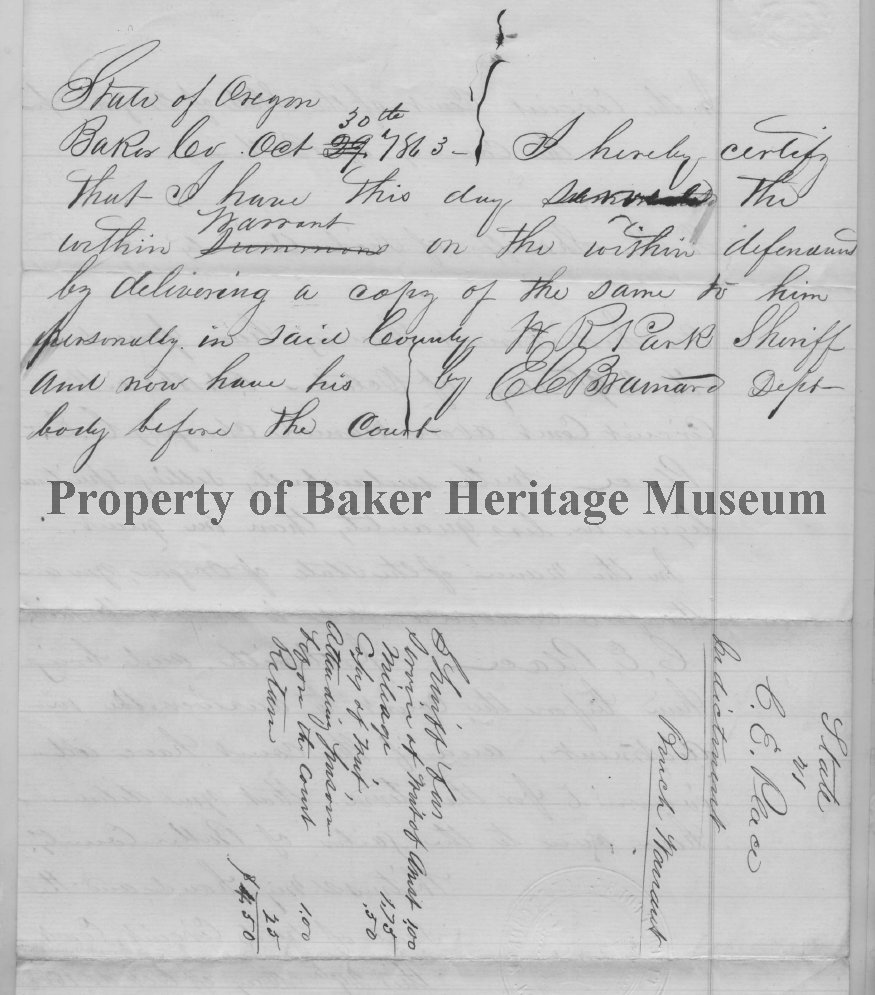 State of Oregon
30th
Baker Co. Oct 29 1863 - I hereby certify
that I have this day served the
Warrant
within Summons on the within defendant
by delivering a copy of the same to him
personally in said County W R Park Sheriff
and now have his by E C Brainard Dept
body before the Court
Property of Baker Heritage Museum
State
vs
C. E. Place
Indictment
Bench Warrant
Sheriff Fees
Service of Writ of Arrest 1.00
Mileage 1.75
Copy of Writ .50
Attending prisoner
before the Court 1.00
Return 25
$4.50